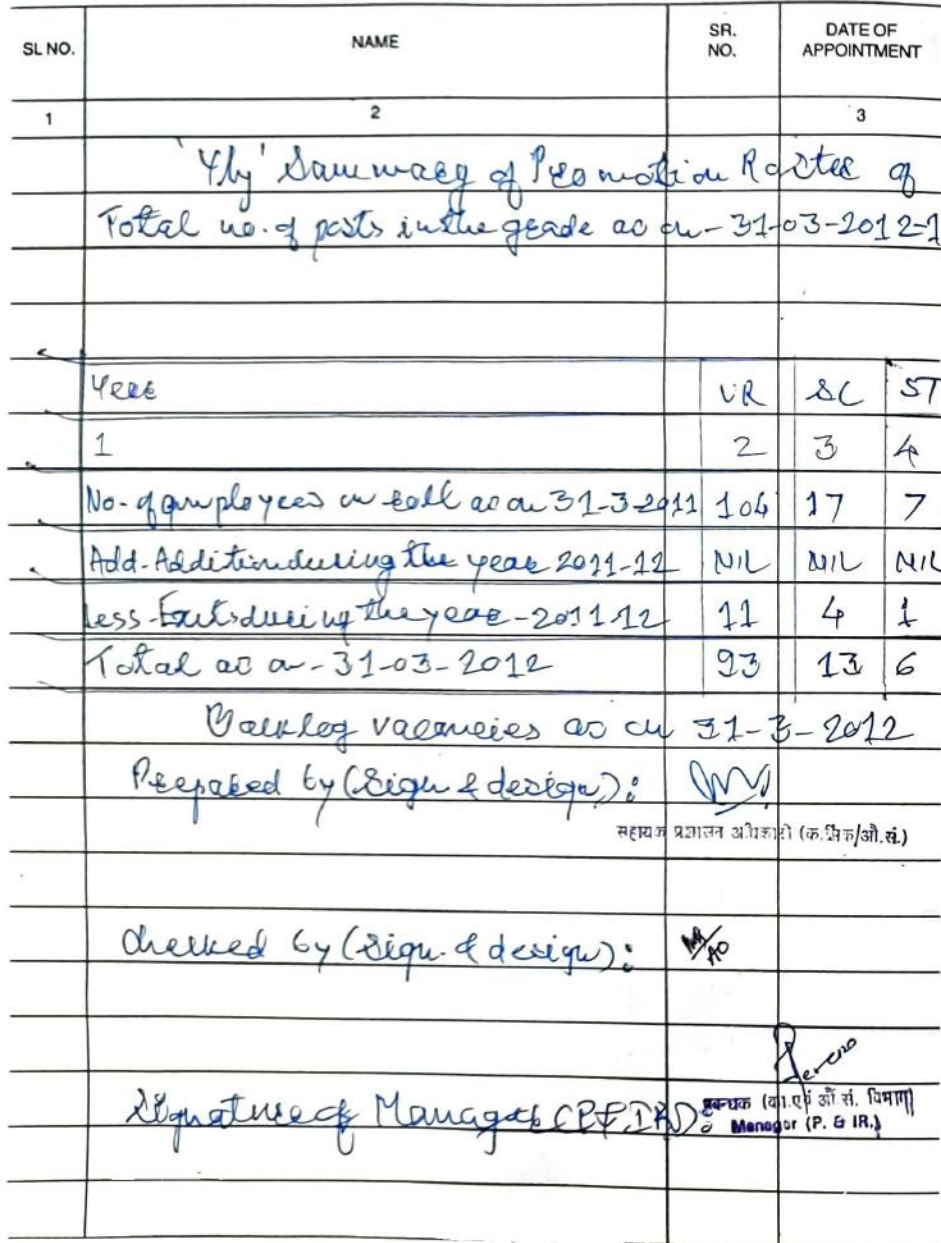 SL NO. NAME SR. NO. DATE OF APPOINTMENT
1 2 3
'Yly' Summary of Promotion Roster of
Total no. of posts in the grade as on - 31-03-2012-1
Year UR SC ST
1 2 3 4
No. of employees on roll as on 31-3-2011 104 17 7
Add-Addition during the year 2011-12 NIL NIL NIL
Less-Exits during the year-2011-12 11 4 1
Total as on - 31-03-2012 93 13 6
Backlog vacancies as on 31-3-2012
Prepared by (Sign & design):
सहायक प्रशासन अधिकारी (कार्मिक/औ.सं.)
Checked by (Sign. & design):
AO
Signature of Manager (P&IR):
प्रबन्धक (का.एवं औ.सं. विभाग)
Manager (P. & IR.)